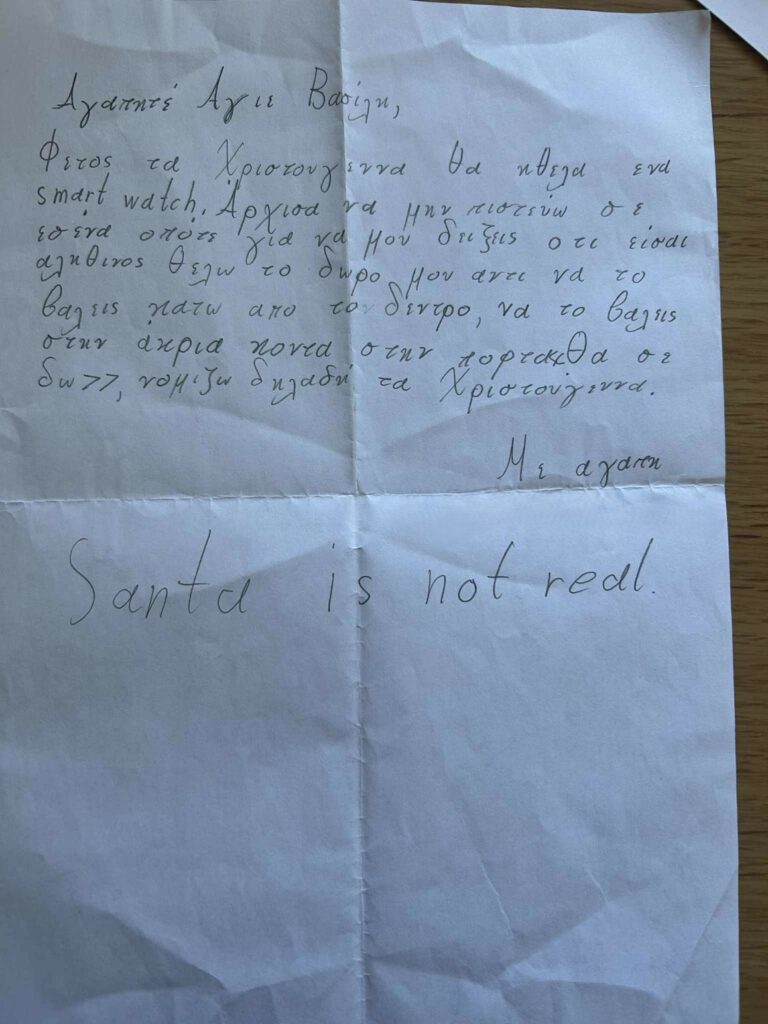 Αγαπητέ Αγιε Βασίλη,
Φετος τα Χριστουγεννα θα ηθελα ενα
smart watch. Άρχισα να μην πιστεύω σε
εσένα οπότε για να μου δειξεις οτι είσαι
αληθινος θελω το δωρο μου αντι να το
βαλεις κατω απο τον δεντρο, να το βαλεις
στην άκρια κοντα στην πορτα. <<Θα σε
δω>>, νομιζω δηλαδή τα Χριστούγεννα.
Με αγαπη
Santa is not real.